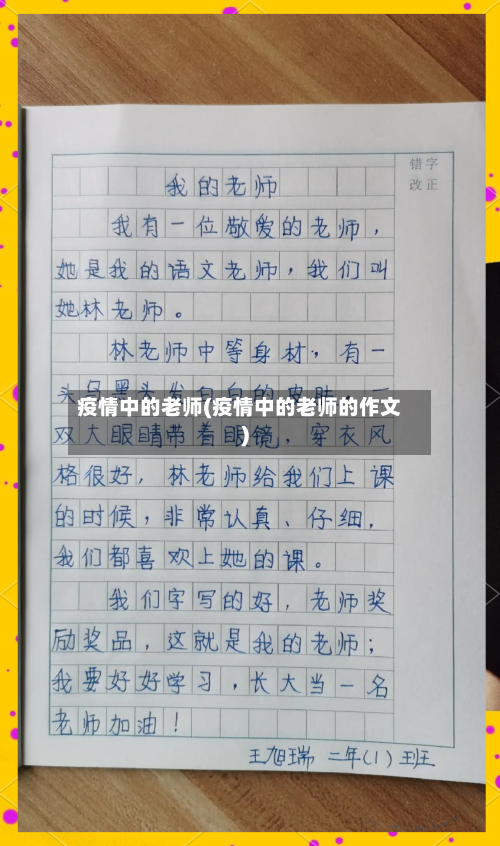 错字
改正
我的老师
我有一位敬爱的老师，
她是我的语文老师，我们叫
她林老师。
林老师中等身材，有一
疫情中的老师(疫情中的老师的作文
)
双大眼睛带着眼镜，穿衣风
格很好，林老师给我们上课
的时候，非常认真、仔细，
我们都喜欢上她的课。
我们字写的好，老师奖
励奖品，这就是我的老师；
我要好好学习，长大当一名
老师加油！
王旭瑞 二年(1)班